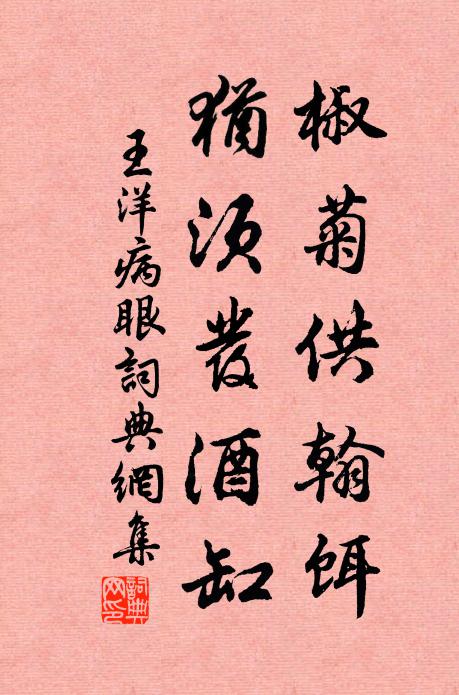 椒菊供翰餌
猶須發酒缸
王洋病眼詞典網集
詞典網印